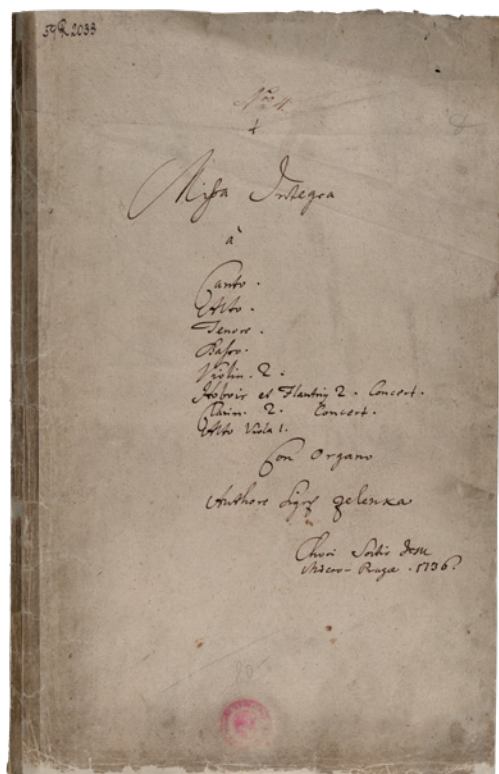 59 R 2033
Nro 4.
Missa Integra
à
Canto.
Alto.
Tenore.
Basso.
Violin. 2.
Hobois et Flautrin 2. Concert.
Clarin. 2. Concert.
Alto Viola 1.
Con Organo
Authore Sigre Zelenka
Chori
Micro-Pragæ. 1736.